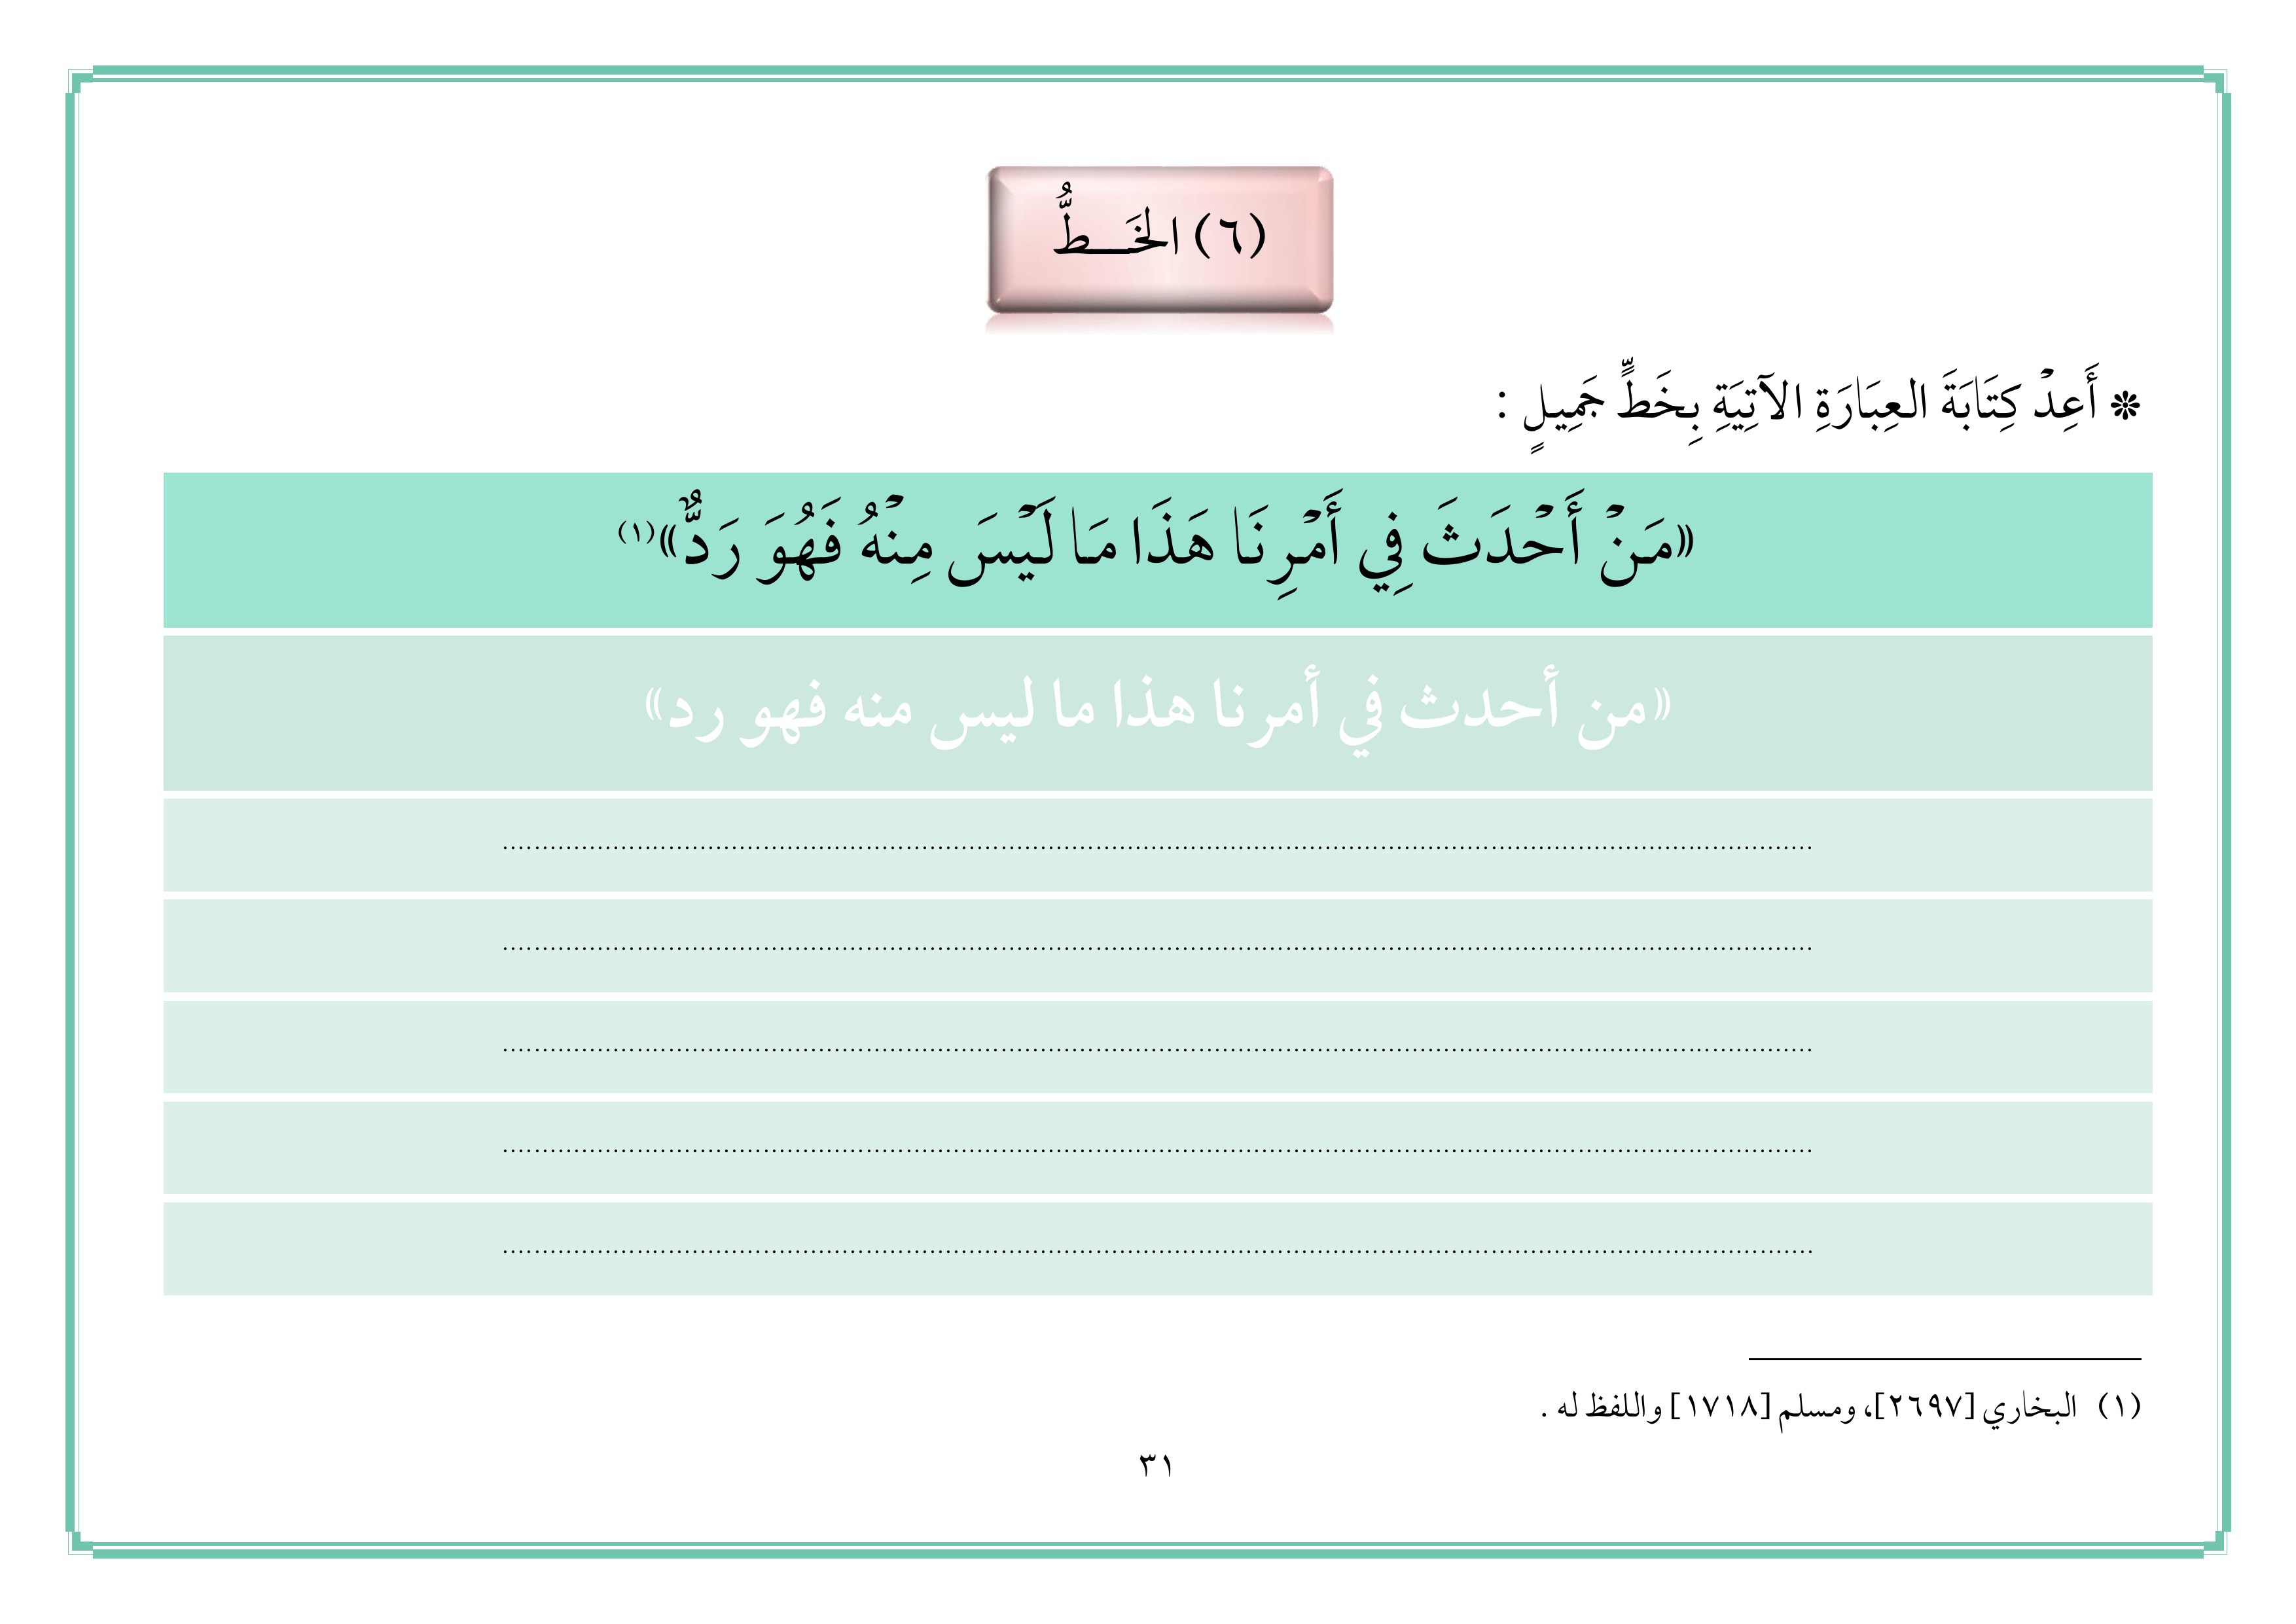 (٦) الخَــطُّ
❊ أَعِدْ كِتَابَةَ العِبَارَةِ الآتِيَةِ بِخَطٍّ جَمِيلٍ :
«مَنْ أَحْدَثَ فِي أَمْرِنَا هَذَا مَا لَيْسَ مِنْهُ فَهُوَ رَدٌّ»(١)
«من أحدث في أمرنا هذا ما ليس منه فهو رد»
(١) البخاري [٢٦٩٧]، ومسلم [١٧١٨] واللفظ له .
٣١